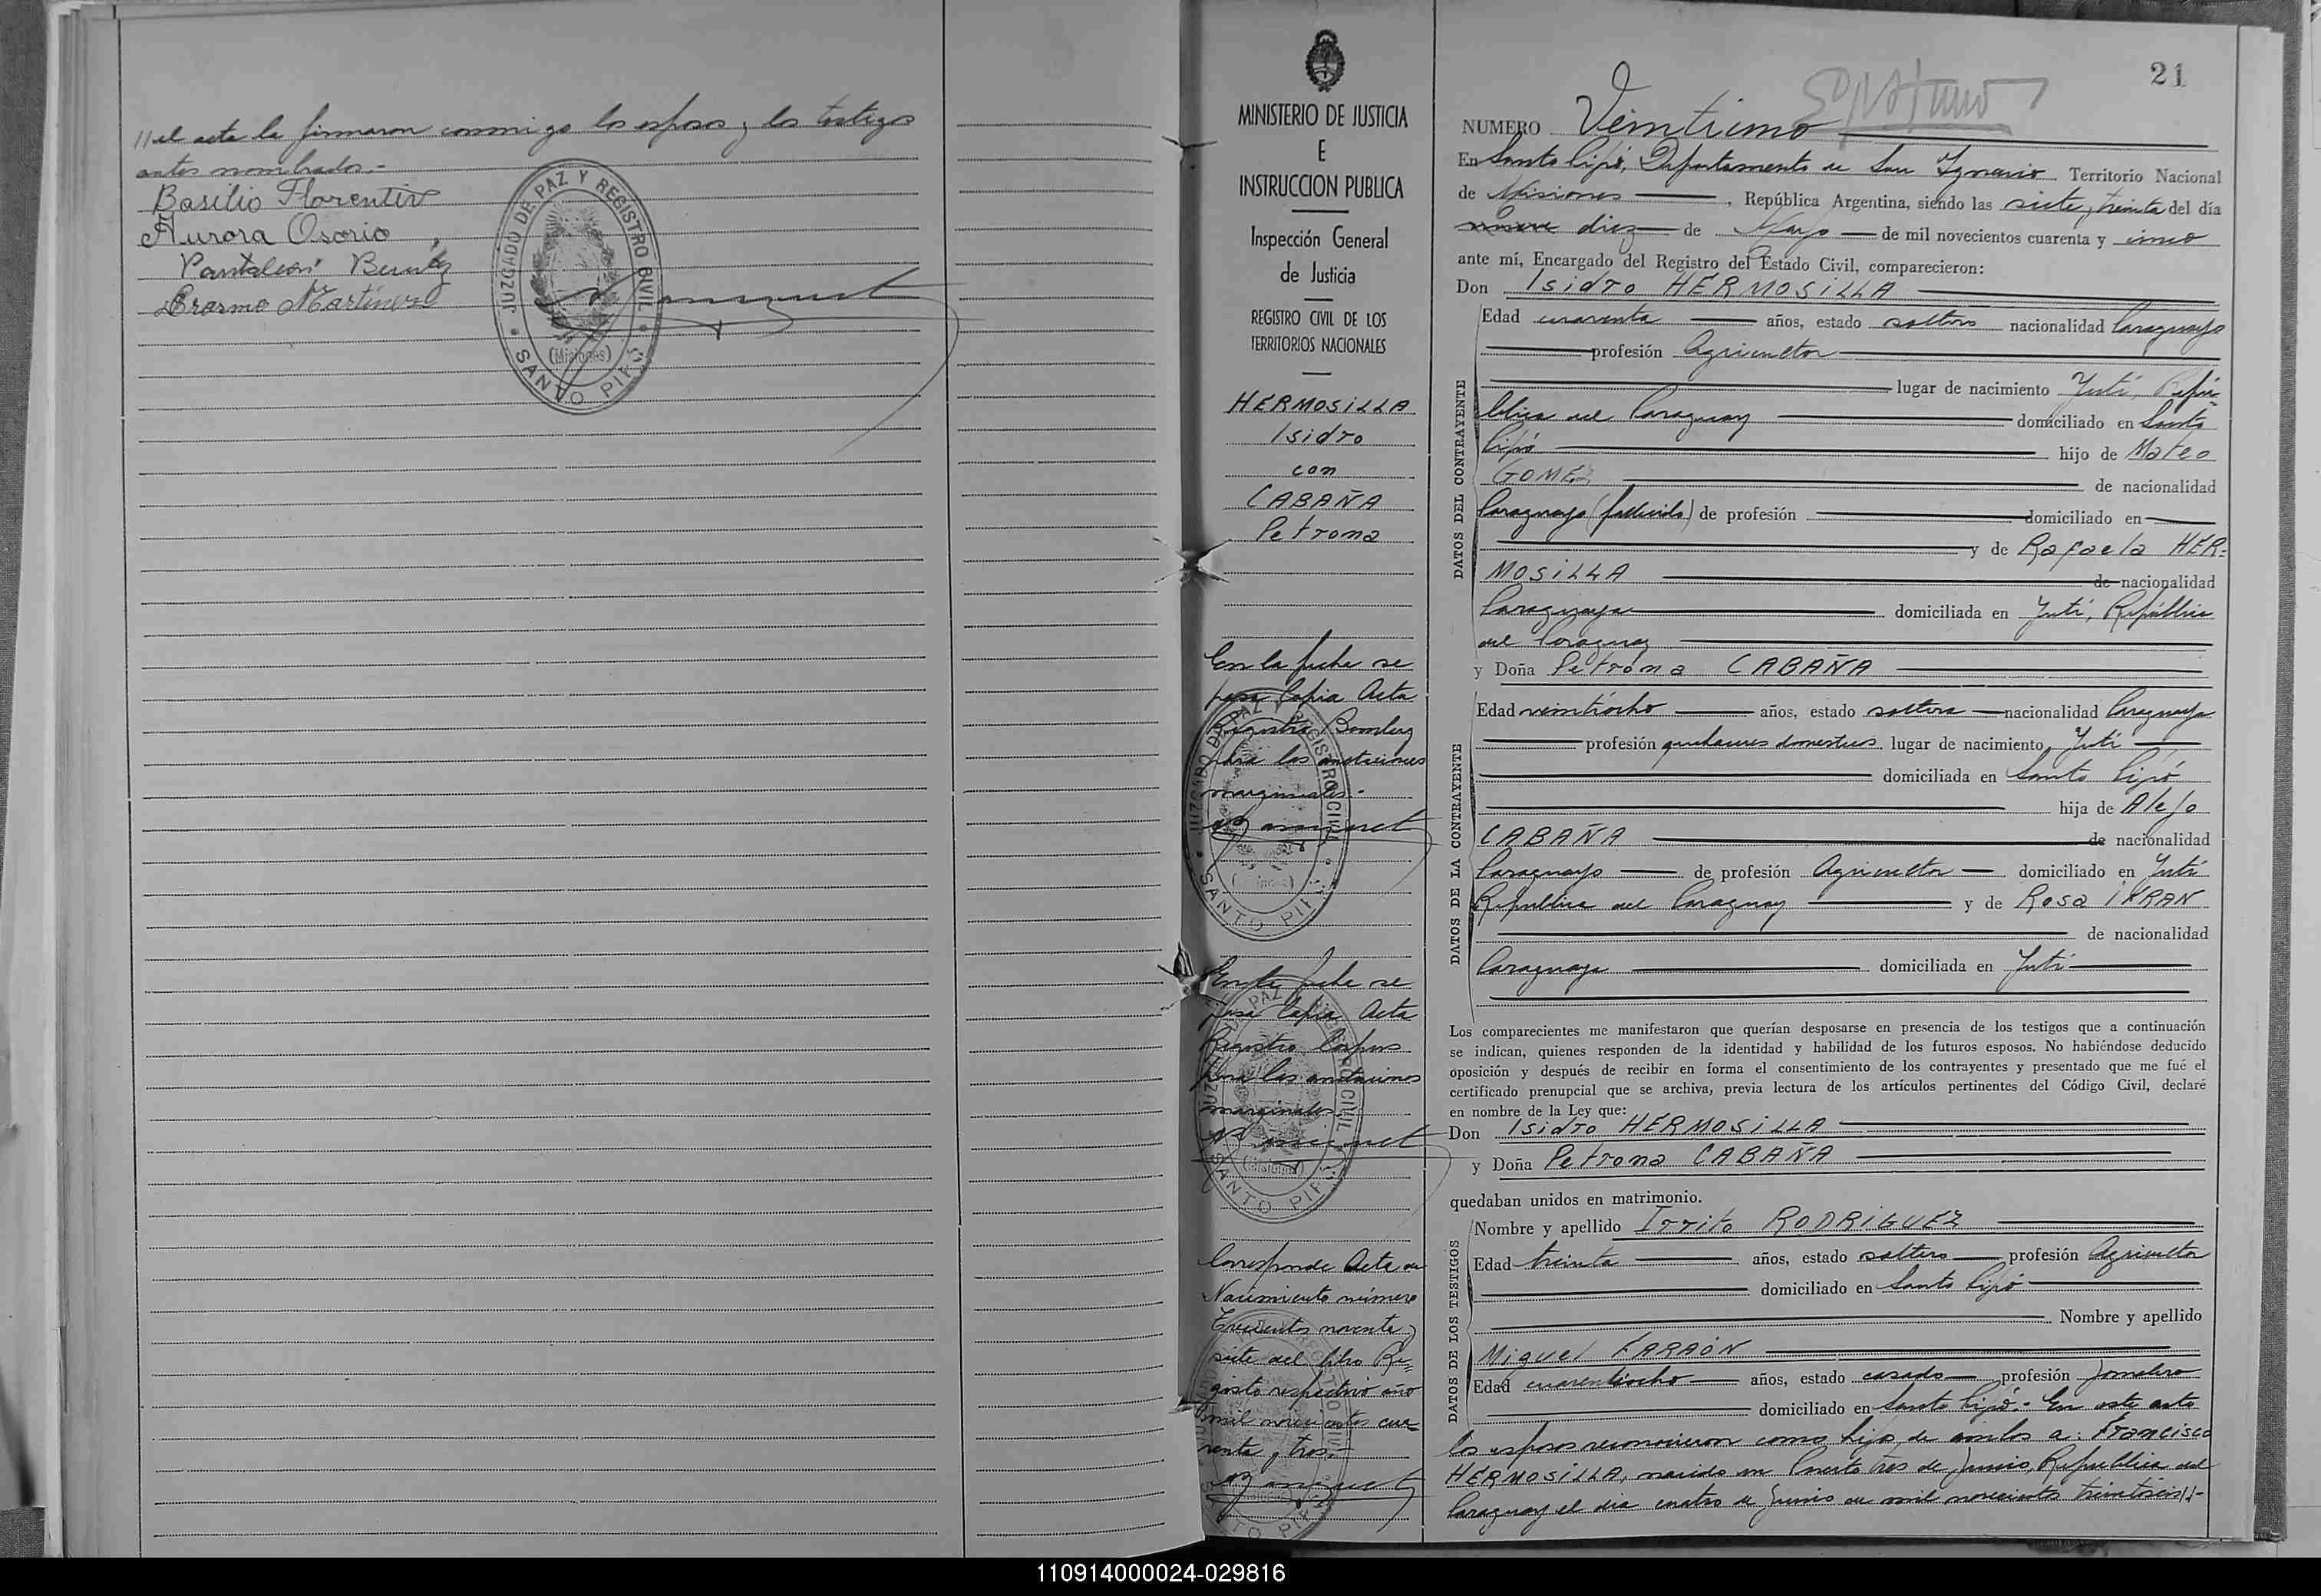 // el acta la firmaron conmigo los esposos y los testigos
antes nombrados.-
Basilio Florentin
Aurora Osorio
Pantaleón Benitez
Erasmo Martinez
JUZGADO DE PAZ Y REGISTRO CIVIL
(Misiones)
SANTO PIPÓ
MINISTERIO DE JUSTICIA
E
INSTRUCCION PUBLICA
Inspección General
de Justicia
REGISTRO CIVIL DE LOS
TERRITORIOS NACIONALES
HERMOSILLA
Isidro
con
CABAÑA
Petrona
En la fecha se
pasa Copia Acta
Registro Bomberg
para las anotaciones
marginales.-
En la fecha se
pasa Copia Acta
Registro Corpus
para las anotaciones
marginales.
Corresponde Acta de
Nacimiento número
Trecientos noventa y
siete del libro Re=
gisto respectivo año
mil novecientos cua=
renta y tres.-
21
NUMERO Veintiuno
En Santo Pipó, Departamento de San Ignacio Territorio Nacional
de Misiones, República Argentina, siendo las siete y treinta del día
nueve diez de Mayo de mil novecientos cuarenta y cinco
ante mí, Encargado del Registro del Estado Civil, comparecieron:
Don Isidro HERMOSILLA
DATOS DEL CONTRAYENTE
Edad cuarenta años, estado soltero nacionalidad Paraguayo
profesión Agricultor
lugar de nacimiento Yuti, Repú=
blica del Paraguay domiciliado en Santo
Pipó hijo de Mateo
GOMEZ de nacionalidad
Paraguayo (fallecido) de profesión domiciliado en
y de Rafaela HER=
MOSILLA de nacionalidad
Paraguaya domiciliada en Yuti, República
del Paraguay
y Doña Petrona CABAÑA
DATOS DE LA CONTRAYENTE
Edad veintiocho años, estado soltera nacionalidad Paraguaya
profesión quehaceres domesticos lugar de nacimiento Yuti
domiciliada en Santo Pipó
hija de Alejo
CABAÑA de nacionalidad
Paraguayo de profesión Agricultor domiciliado en Yuti
República del Paraguay y de Rosa
de nacionalidad
Paraguaya domiciliada en Yuti
Los comparecientes me manifestaron que querían desposarse en presencia de los testigos que a continuación
se indican, quienes responden de la identidad y habilidad de los futuros esposos. No habiéndose deducido
oposición y después de recibir en forma el consentimiento de los contrayentes y presentado que me fué el
certificado prenupcial que se archiva, previa lectura de los artículos pertinentes del Código Civil, declaré
en nombre de la Ley que:
Don Isidro HERMOSILLA
y Doña Petrona CABAÑA
quedaban unidos en matrimonio.
DATOS DE LOS TESTIGOS
Nombre y apellido RODRIGUEZ
Edad treinta años, estado soltero profesión Agricultor
domiciliado en Santo Pipó
Nombre y apellido
Miguel FARAÓN
Edad cuarentiocho años, estado casado profesión Jornalero
domiciliado en Santo Pipó.- En este acto
los esposos reconocieron como hijo de ambos a: Francisco
HERMOSILLA, nacido en Puerto Tres de Junio, República del
Paraguay el día cuatro de Junio de mil novecientos treintiseis//-
110914000024-029816